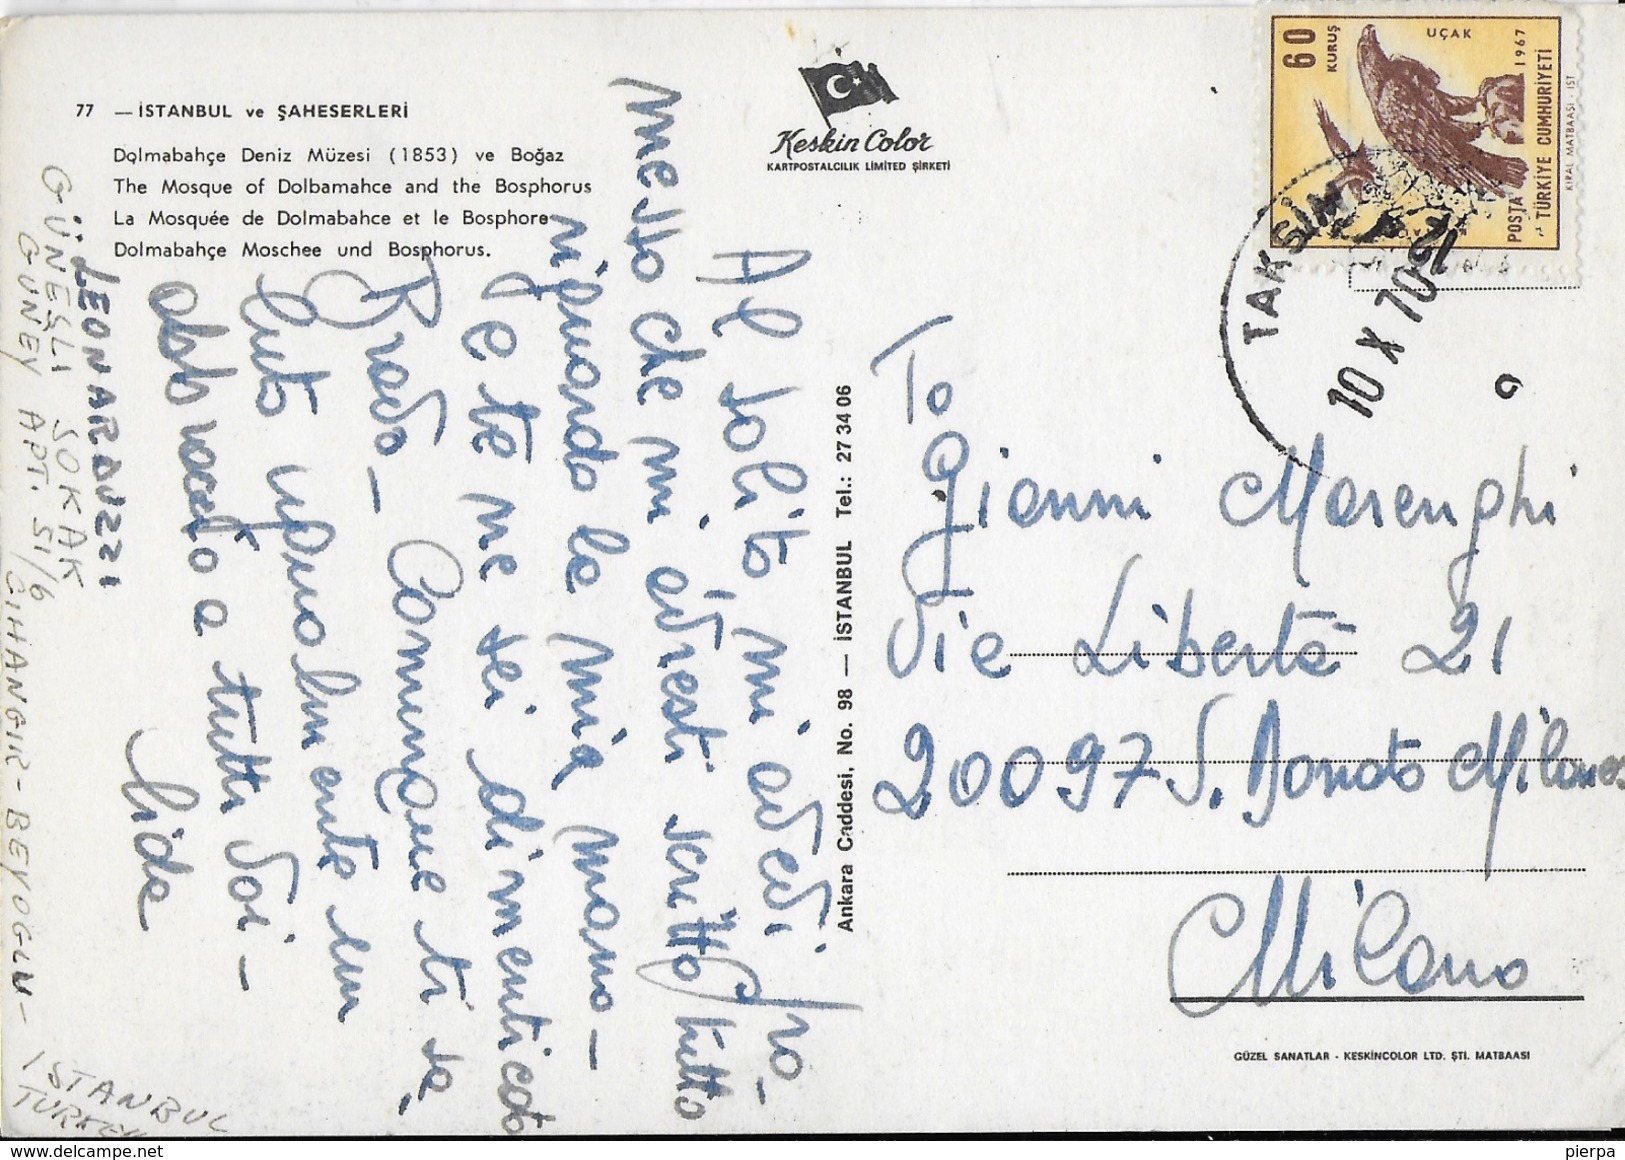 77 — İSTANBUL ve ŞAHESERLERİ
Dolmabahçe Deniz Müzesi (1853) ve Boğaz
The Mosque of Dolbamahce and the Bosphorus
La Mosquée de Dolmabahce et le Bosphore
Dolmabahçe Moschee und Bosphorus.
Keskin Color
KARTPOSTALCILIK LIMITED ŞİRKETİ
60
KURUŞ
UÇAK
1967
POSTA TÜRKİYE CUMHURİYETİ
KIRAL MATBAASI - IST
TAKSİM
10 X 70
12
Al solito, mi avevi
messo che mi avresti scritto tutto
riguardo la mia mano -
e te me sei dimenticato
Bravo - Comunque ti sa
luto ugualmente un
abbraccio a tutti voi -
Lida
LEONARDUZZI
GÜNEŞLİ SOKAK
GUNEY APT. 51/6
CIHANGIR - BEYOGLU -
ISTANBUL
TURKEY
Ankara Caddesi, No. 98 — İSTANBUL Tel.: 27 34 06
To
Gianni Marenghi
Via Libertà 21
20097 S. Donato Milanese
Milano
GÜZEL SANATLAR - KESKİNCOLOR LTD. ŞTİ. MATBAASI
pierpa